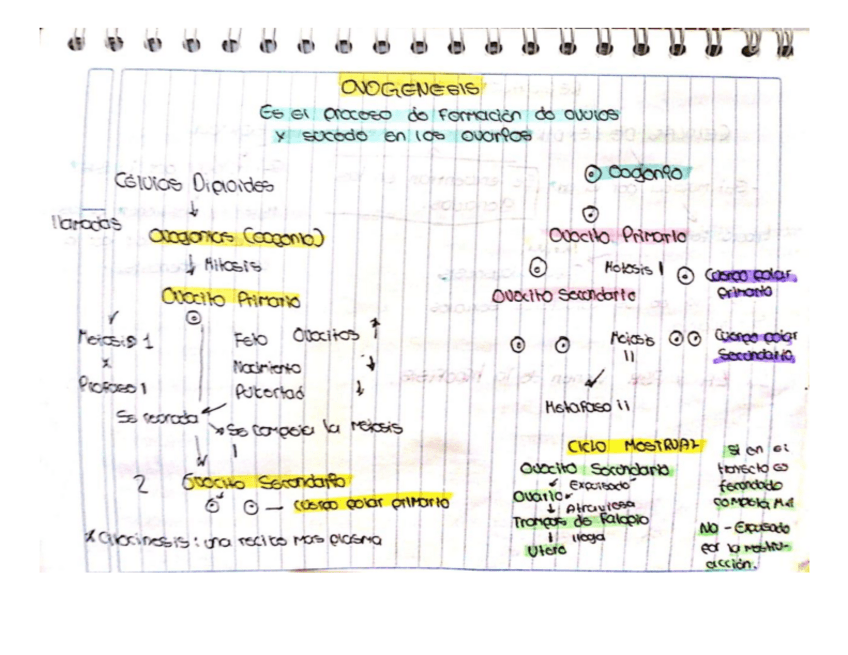 OVOGENESIS
Es el proceso de formación de ovulos
y sucede en los ovarios
Células Diploides
llamadas
Ovogonias (oogonio)
Mitosis
Ovocito Primario
Meiosis 1
x
Profase 1
Feto Ovocitos ↑
Nacimiento ↓
Pubertad ↓
Se
Se completa la Meiosis
I
2 Ovocito Secundario
cuerpo polar primario
* Citocinesis: una recibe mas plasma
Oogonio
Ovocito Primario
Meiosis I Cuerpo polar
primario
Ovocito Secundario
Meiosis Cuerpo polar
II Secundario
Metafase ii
CICLO MOSTRUAL
Ovocito Secundario
Expulsado
Ovario
↓ Atraviesa
Trompas de Falopio
↓ llega
Utero
Si en el
trayecto es
fecundado
completa M.II
No - Expulsado
por la mestru-
acción.